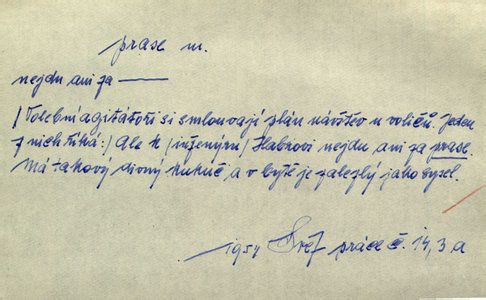 prase m.
nejdu ani za ——
/Volební agitátoři si smlouvají plán návštěv u voličů. Jeden
z nich říká:/ Ale k /inženýru/ Habrovi nejdu ani za prase.
Má takový divný kukuč a v bytě je zalezlý jako sysel.
1954 práce č. 14, 3 a